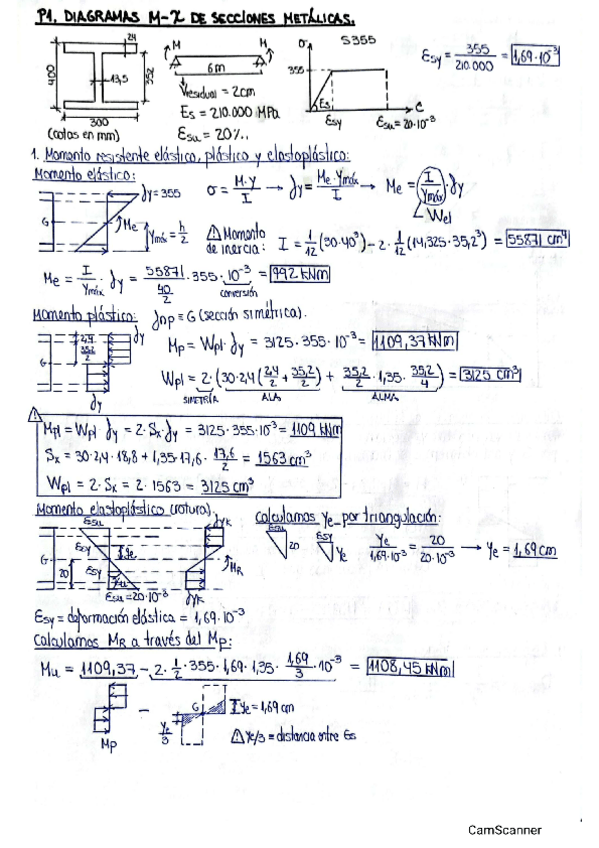 P1. DIAGRAMAS M-χ DE SECCIONES METÁLICAS.
24
400
13,5
352
300
(cotas en mm)
M M
6m
Vresidual = 2cm
Es = 210.000 MPa
Esu = 20%.
σ S355
355
Es
Esy Esu=20·10⁻³
ε
Esy = 355/210.000 = 1,69·10⁻³
1. Momento resistente elástico, plástico y elastoplástico:
Momento elástico:
fy=355
G
Me
Ymáx = h/2
σ = M·Y/I → fy = Me·Ymáx/I → Me = (I/Ymáx)·fy
Wel
⚠ Momento de inercia: I = 1/12 (30·40³) - 2·1/12 (14,325·35,2³) = 55871 cm⁴
Me = I/Ymáx · fy = 55871/(40/2) · 355·10⁻³ = 992 kNm
conversión
Momento plástico: fnp ≡ G (sección simétrica).
2,4
35,2/2
fy
G
fy
Mp = Wpl·fy = 3125·355·10⁻³ = 1109,37 kNm
Wpl = 2·(30·2,4(2,4/2 + 35,2/2) + 35,2/2·1,35·35,2/4) = 3125 cm³
SIMETRÍA ALA ALMA
⚠
Mpl = Wpl·fy = 2·Sx·fy = 3125·355·10⁻³ = 1109 kNm
Sx = 30·2,4·18,8 + 1,35·17,6·17,6/2 = 1563 cm³
Wpl = 2·Sx = 2·1563 = 3125 cm³
Momento elastoplástico (rotura).
Esu
fyk
Esy
Ye
G
Esy
20
MR
Esu=20·10⁻³
fyk
Calculamos Ye por triangulación:
Esu 20
Esy Ye
Ye/1,69·10⁻³ = 20/20·10⁻³ → Ye = 1,69 cm
Esy = deformación elástica = 1,69·10⁻³
Calculamos MR a través del Mp:
Mu = 1109,37 - 2·1/2·355·1,69·1,35·1,69/3·10⁻³ = 1108,45 kNm
Mp
-
G
Ye = 1,69 cm
Ye/3
⚠ Ye/3 = distancia entre Es
CamScanner